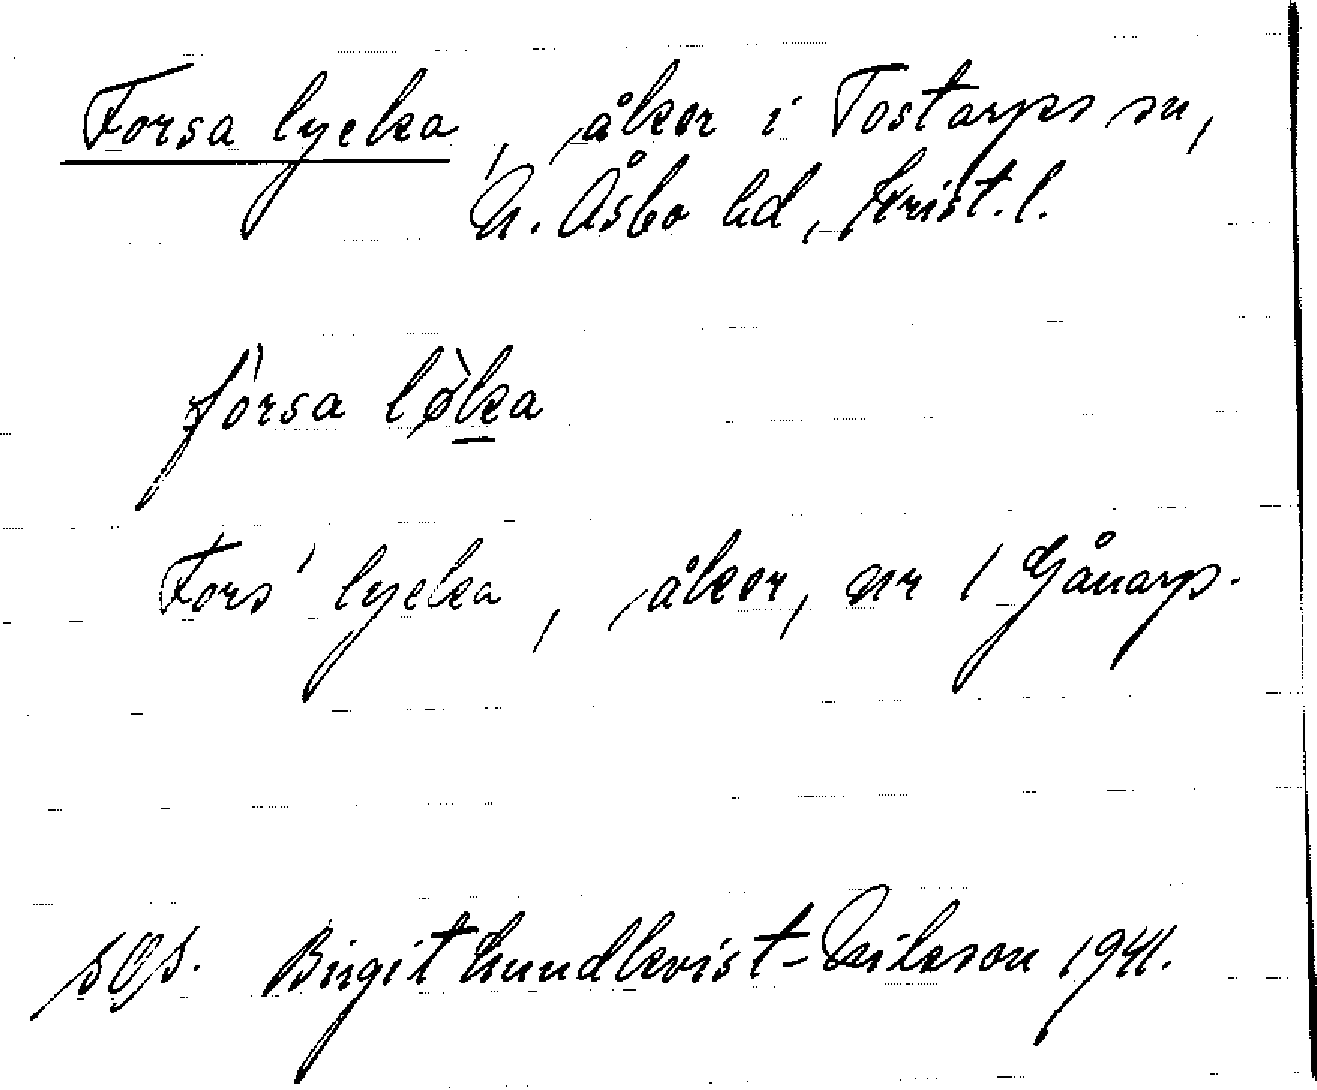 Forsa lycka, åker i Tostarps sn,
N. Åsbo hd, Krist. l.
fòrsa lø̀ka
Fors' lycka, åker, nr 1 Gånarp.
Birgit Lundkvist-Nilsson 1941.